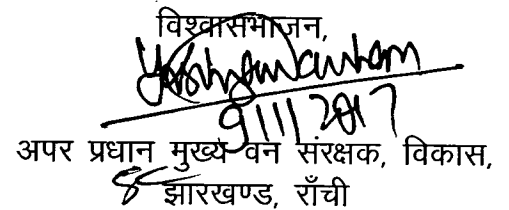 विश्वासभाजन,
9/11/2017
अपर प्रधान मुख्य वन संरक्षक, विकास,
झारखण्ड, राँची